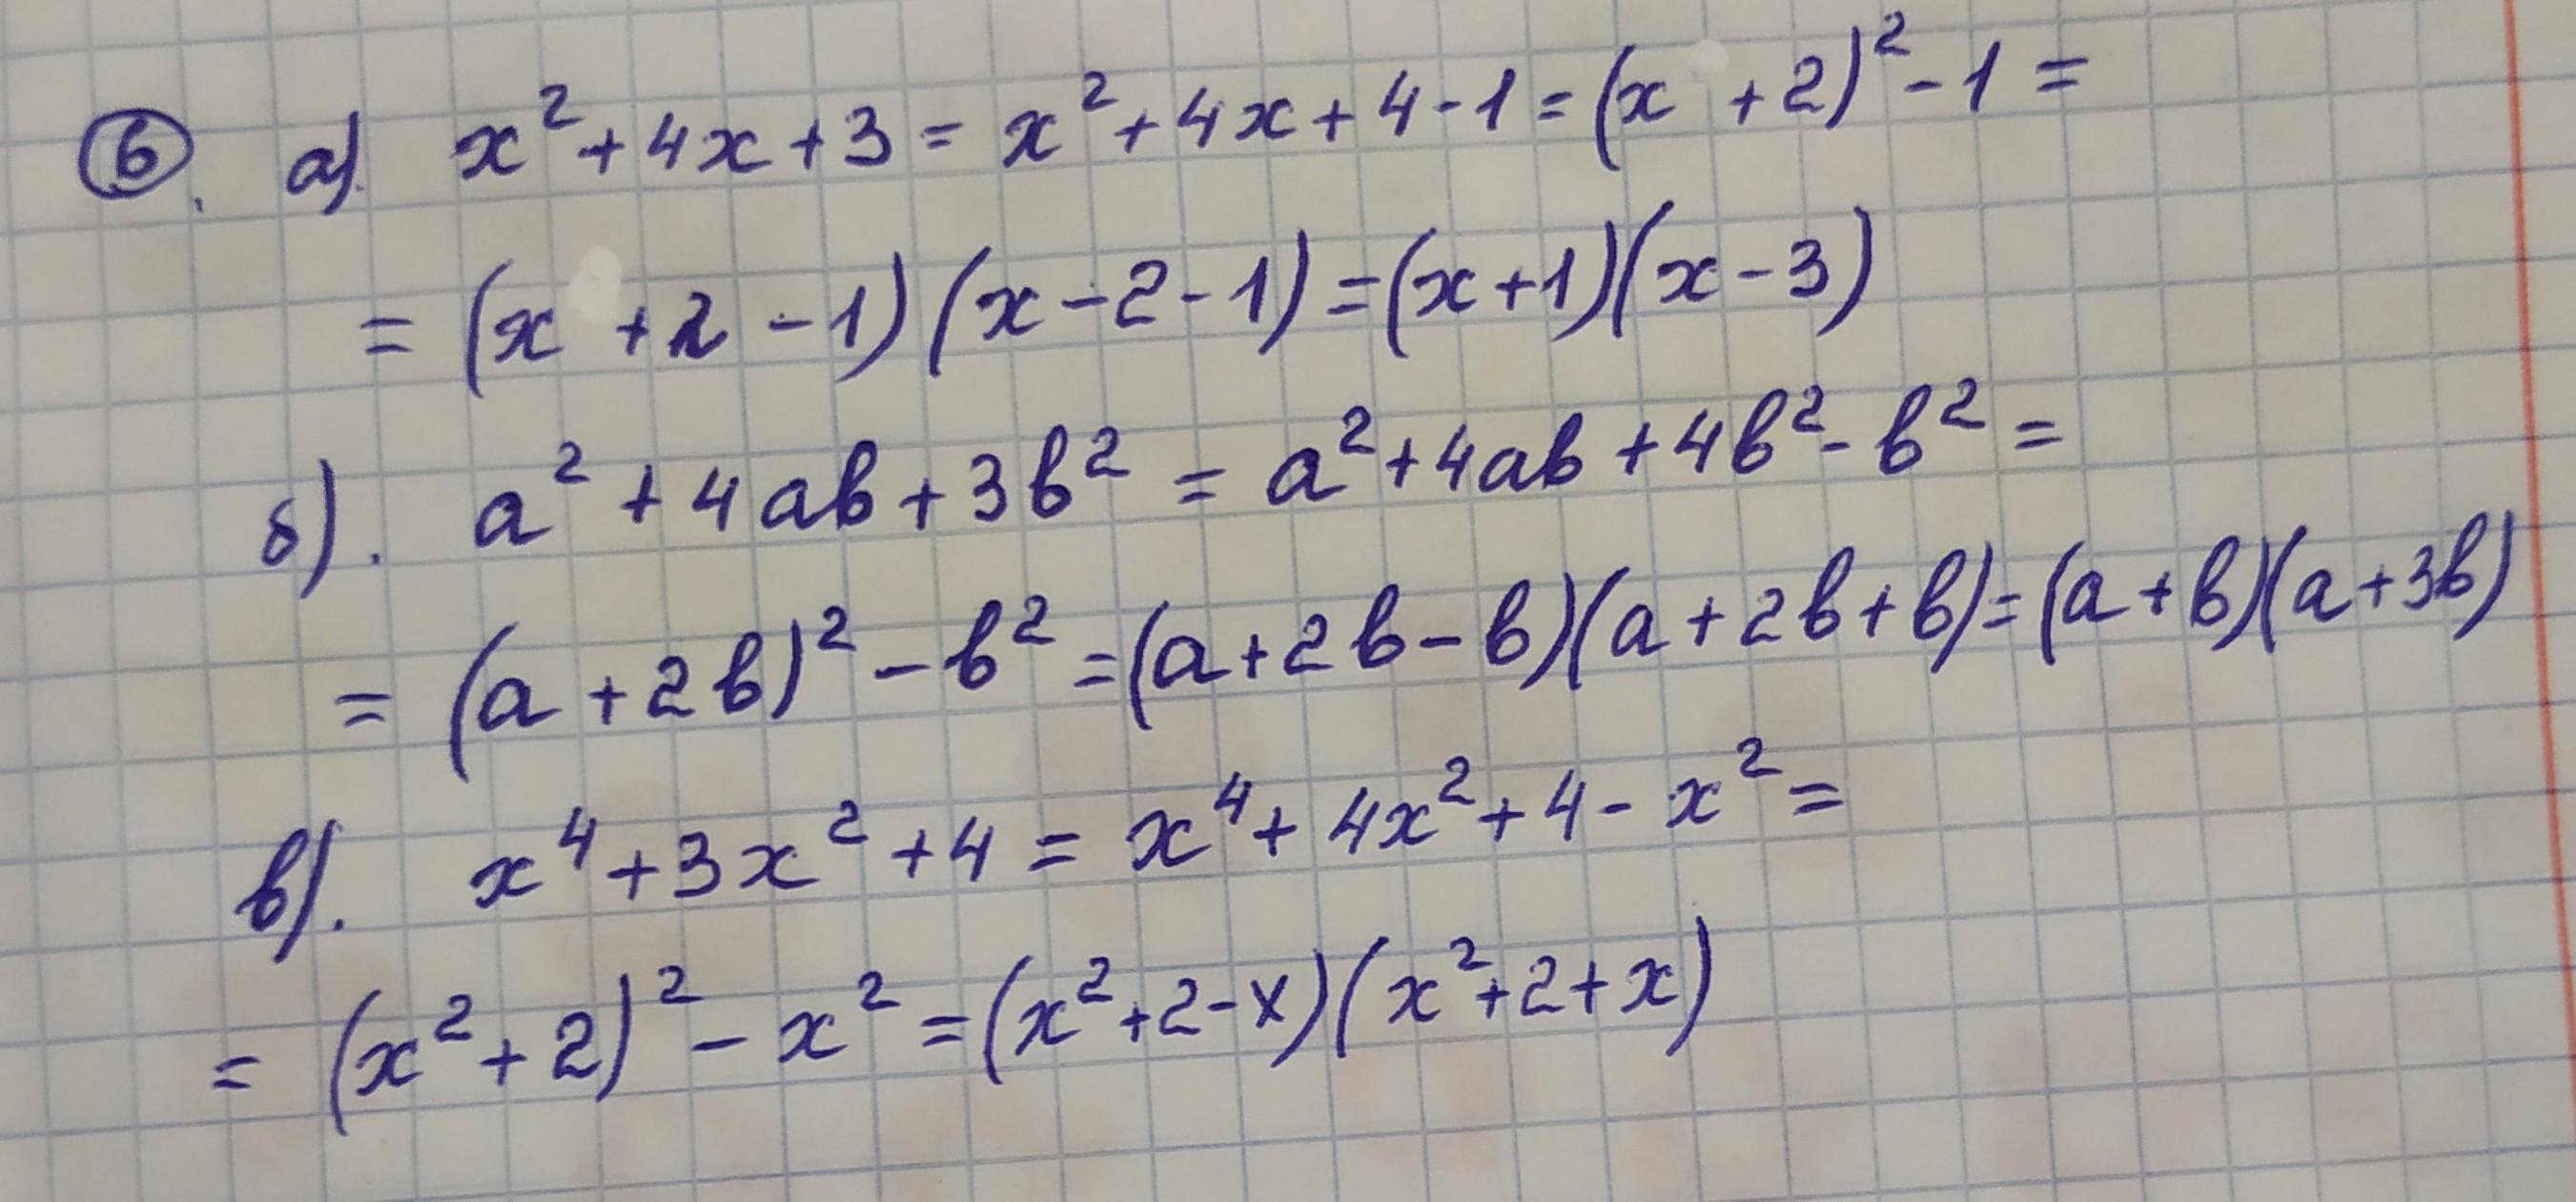 6. а). x² + 4x + 3 = x² + 4x + 4 - 1 = (x + 2)² - 1 =
= (x + 2 - 1)(x - 2 - 1) = (x + 1)(x - 3)
б). a² + 4ab + 3b² = a² + 4ab + 4b² - b² =
= (a + 2b)² - b² = (a + 2b - b)(a + 2b + b) = (a + b)(a + 3b)
в). x⁴ + 3x² + 4 = x⁴ + 4x² + 4 - x² =
= (x² + 2)² - x² = (x² + 2 - x)(x² + 2 + x)